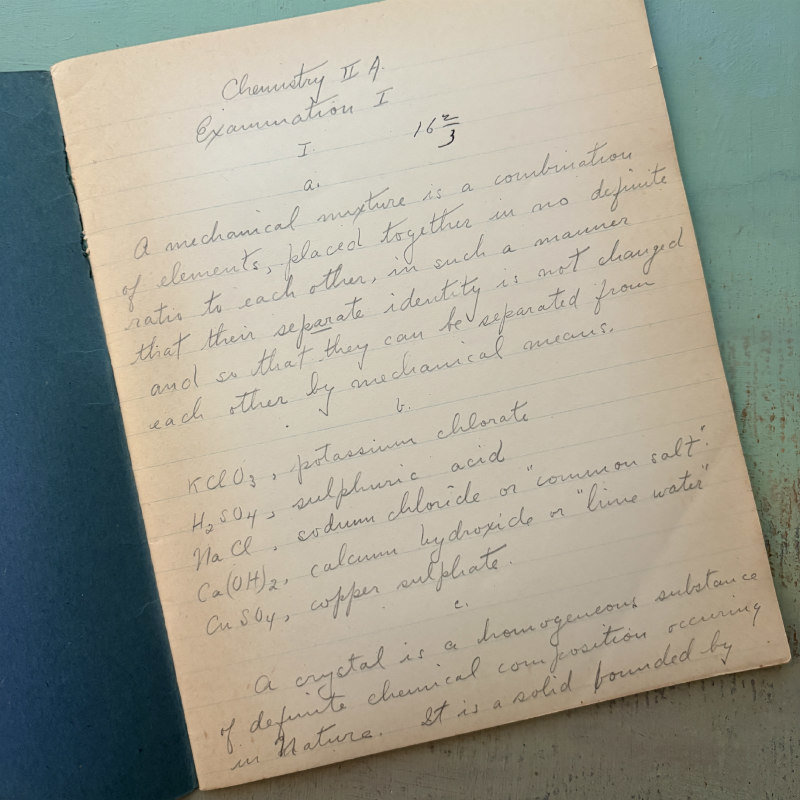 Chemistry II A.
Examination I
I.
16 2/3
a.
A mechanical mixture is a combination
of elements, placed together in no definite
ratio to each other, in such a manner
that their separate identity is not changed
and so that they can be separated from
each other by mechanical means.
b.
KClO3, potassium chlorate
H2SO4, sulphuric acid
NaCl, sodium chloride or "common salt".
Ca(OH)2, calcium hydroxide or "lime water"
CuSO4, copper sulphate.
c.
A crystal is a homogeneous substance
of definite chemical composition occuring
in Nature. It is a solid bounded by